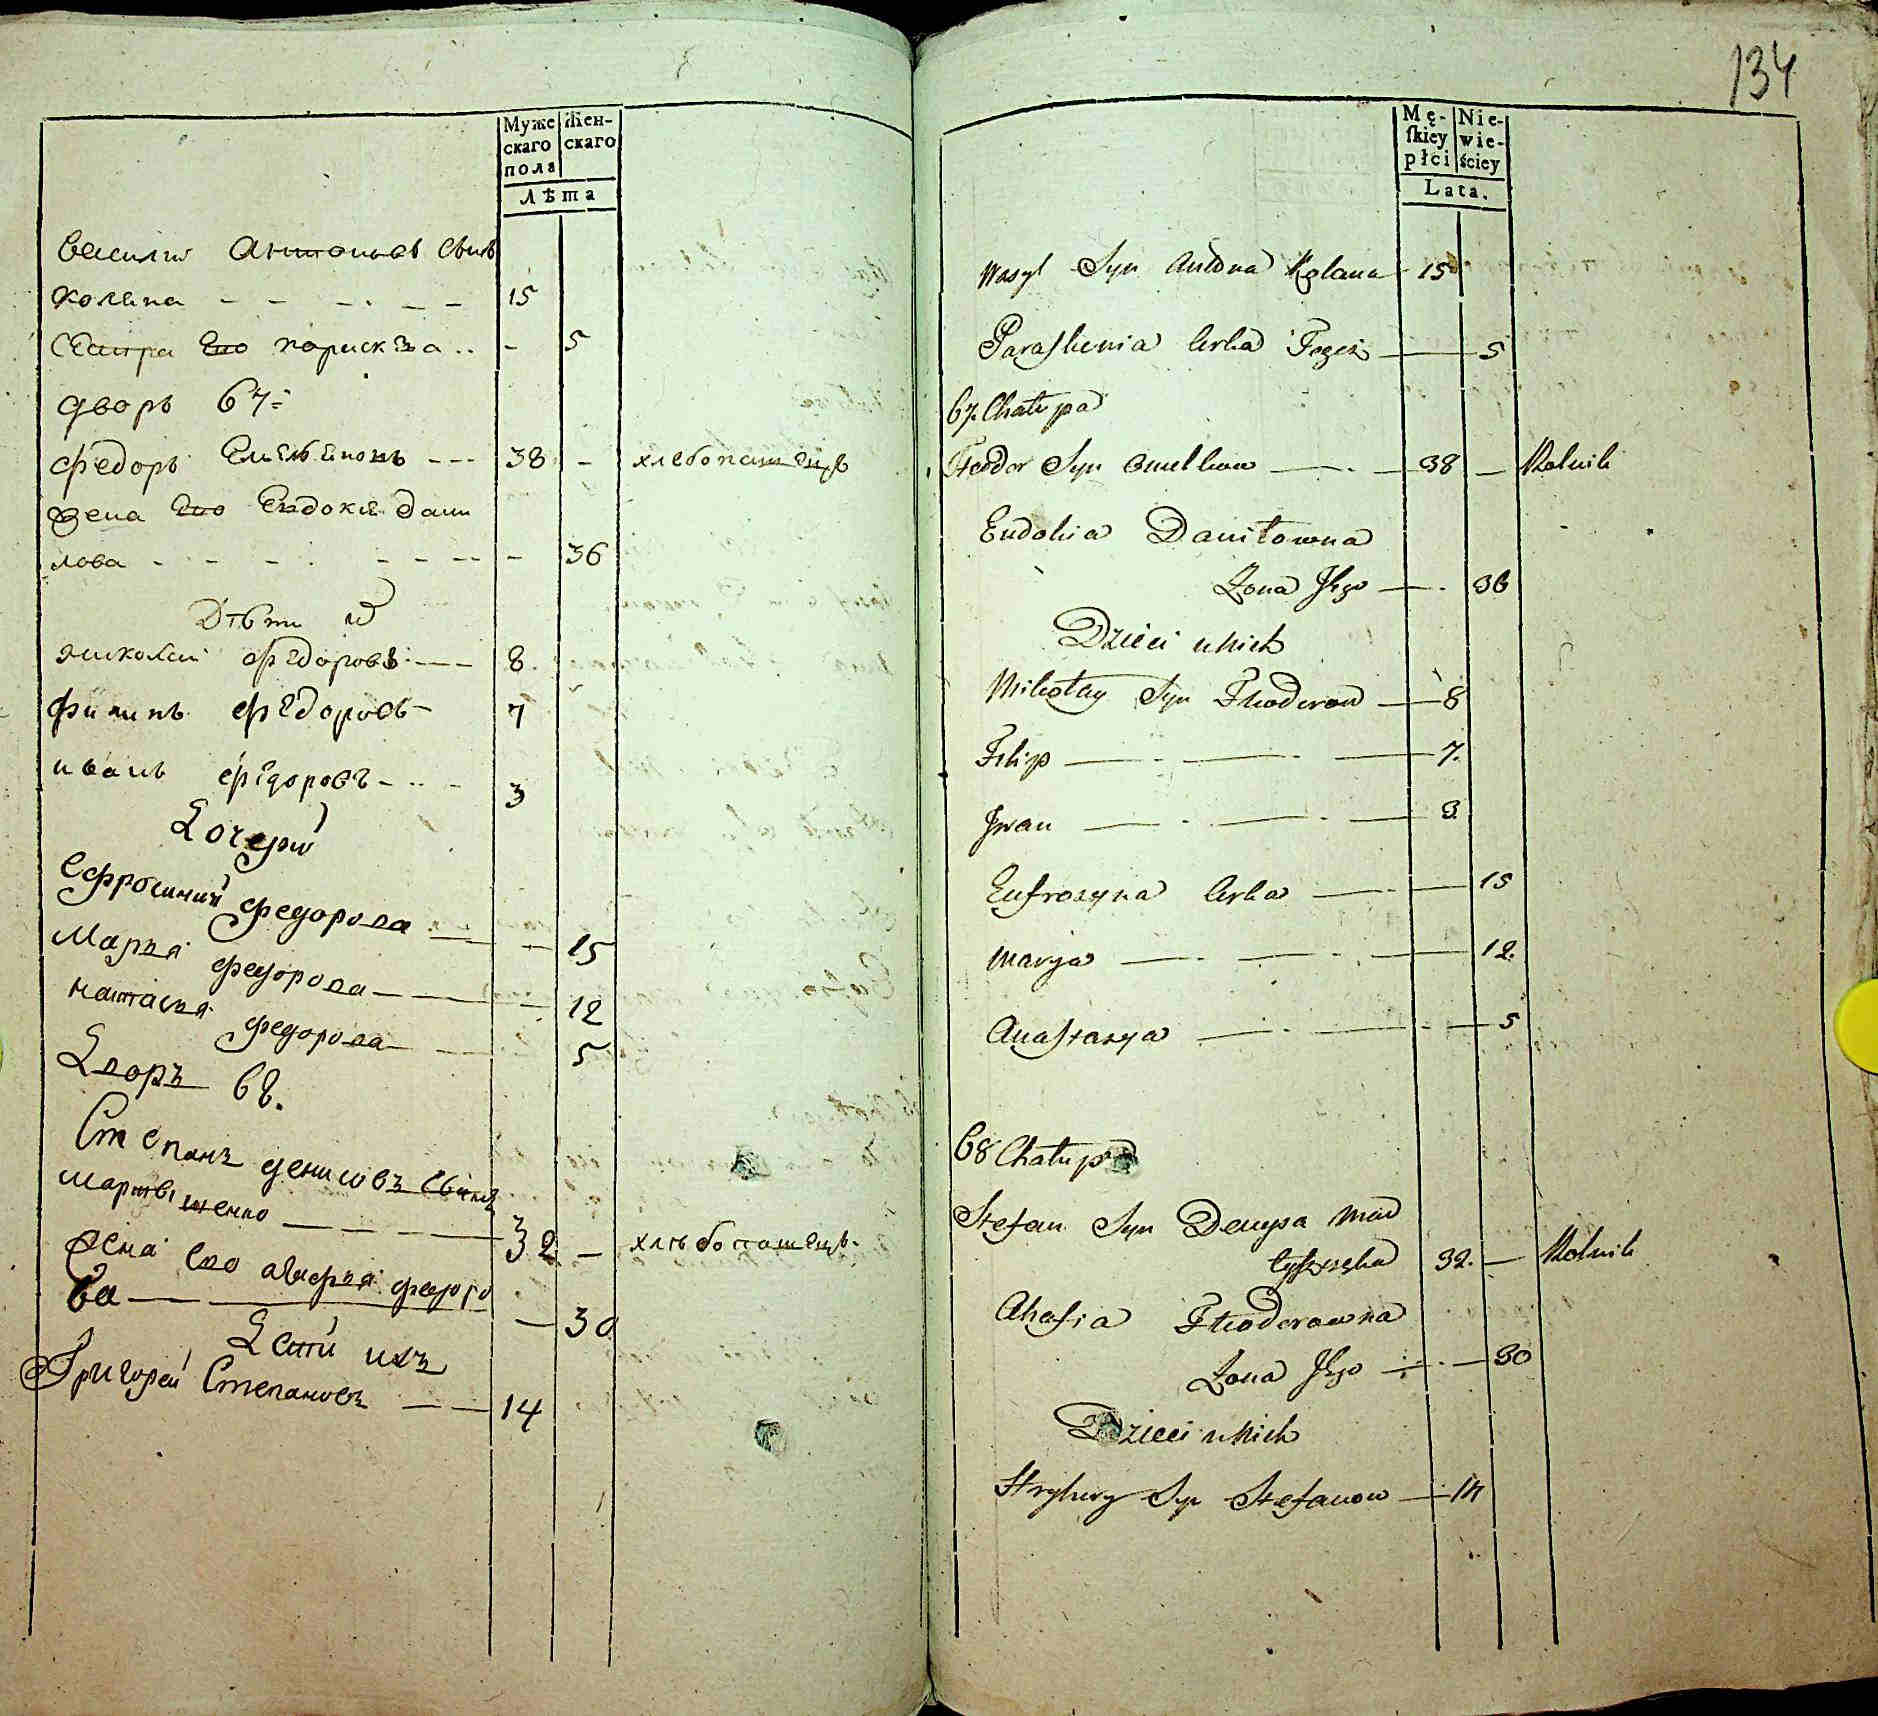 Муже
скаго
пола
Жен-
скаго
Лѣта
Василій Антоновъ Сынъ
Колена - - - - - 15
Сестра Его Параскѣва .. - 5
дворъ 67
Федоръ Емельяновъ --- 38 - хлебопашецъ
Жена Его Евдокия Дани
лова - - - - - - - 36
Дѣти их
Николай Федоровъ --- 8
Филипъ Федоровъ - 7
Иванъ Федоровъ - - - 3
Дочери
Ефросиния Федорова - - 15
Марья Федорова - - 12
Настасья Федорова - - 5
Дворъ 68.
Степанъ Денисовъ Сынъ
32 - хлѣбопашецъ
Жена Его Федоро
ва - - 30
Дети ихъ
Григорей Степановъ - - 14
134
Mę-
ſkiey
płci
Nie-
wie-
ściey
Lata.
Wasyl Syn Antona Kolana 15
Paraſkewia Crka Tegoż — 5
67 Chałupa
Fteodor Syn — 38 — Rolnik
Eudokia Daniłowna
Żona Jego — 36
Dzieci u Nich
Mikołay Syn Fteodorow — 8
Filip — 7.
Jwan — 3
Eufrozyna Crka — 15
Marya — 12.
Anaſtazya — 5
68 Chałupa
Stefan Syn Denysa Mar
32. — Rolnik
Ahafia Fteodorowna
Żona Jego — 30
Dzieci u Nich
Hryhory Syn Stefanow — 14